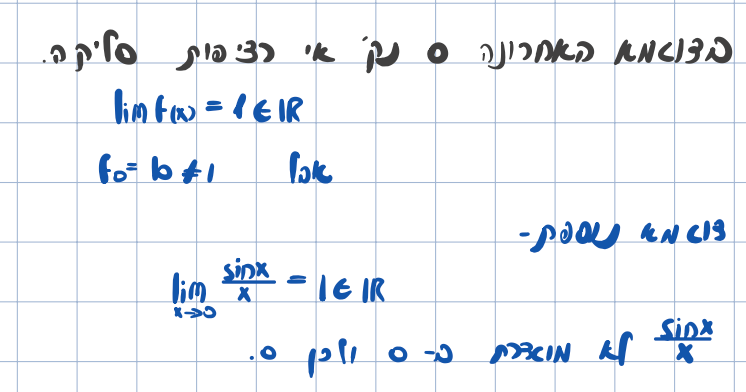 בדוגמא האחרונה 0 נק' אי רציפות סליקה.
lim f(x) = 1 ∈ ℝ
אבל f0 = b ≠ 1
דוגמא נוספת -
lim x→0 sinx/x = 1 ∈ ℝ
sinx/x לא מוגדרת ב- 0 ולכן 0.